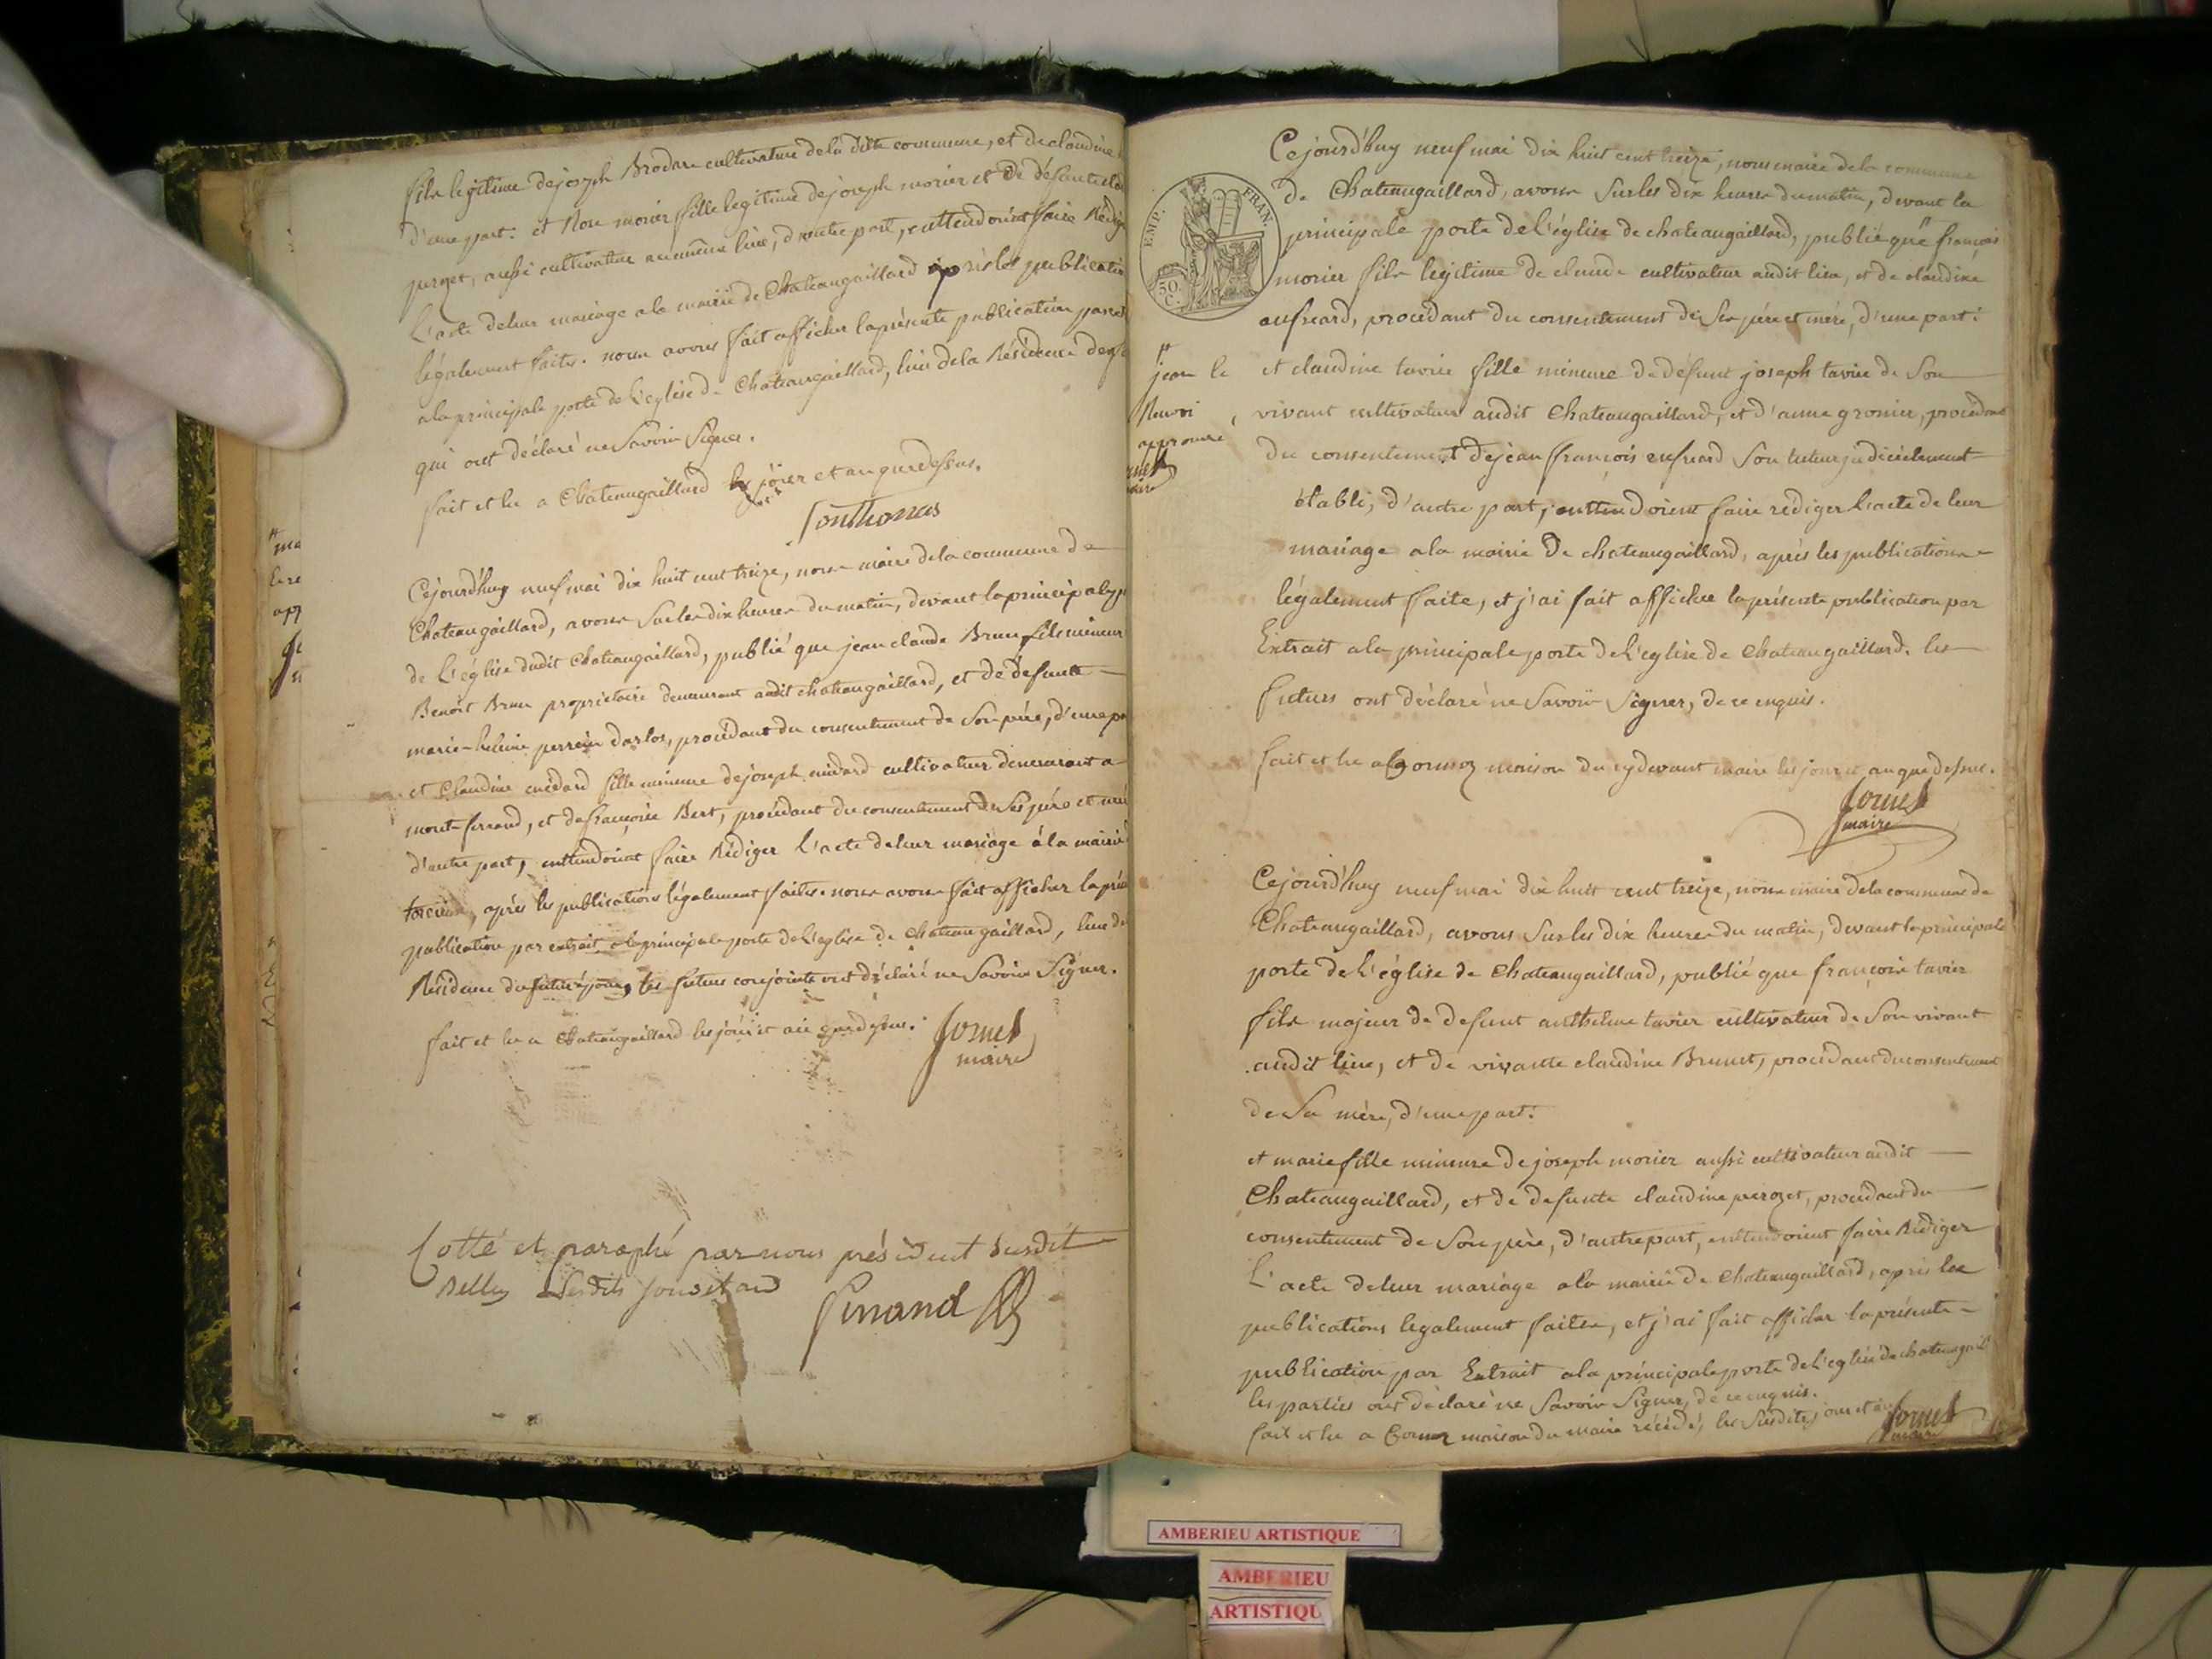 fils legitime de joseph Brodan cultivateur de la dite commune, et de claudine
d'une part. et Rose morier fille legitime de joseph morier et de défunte
perozet, aussi cultivateur au même lieu, d'autre part, entendoient faire Rédiger
L'acte de leur mariage a la mairie de Chateaugaillard après les publications
légalement faites. nous avons fait afficher la présente publication par
a la principale porte de L'eglise de Chateaugaillard, lieu de la Résidence des
qui ont déclaré ne Savoir Signer.
fait et lu a Chateaugaillard les jour et an que dessus.
Cejourd'huy neuf mai dix huit cent treize, nous maire de la commune de
Chateaugaillard, avons Sur les dix heures du matin, devant la principale
de L'église dudit Chateaugaillard, publié que jean claude Brun fils mineur
Benoit Brun propriétaire demeurant audit chateaugaillard, et de défunte
marie-heleine perrein darlos, procédant du consentement de Son père, d'une
et Claudine midard fille mineure de joseph midard cultivateur demeurant a
mont-ferrand, et de françoise Bert, procédant du consentement de Ses père et
d'autre part, entendoient faire Rédiger L'acte de leur mariage à la mairie
torcieu, après les publications légalement faites. nous avons fait afficher la
publication par extrait a la principale porte de L'eglise de Chateaugaillard, lieu de
Résidence du futur époux, les futurs conjoints ont déclaré ne Savoir Signer.
fait et lu a Chateaugaillard les jour et an que dessus.
maire
Cotté et paraphé par nous président susdit
Belley Lesdits jour et an
EMP. FRAN.
50 C.
Cejourd'huy neuf mai dix huit cent treize, nous maire de la commune
de Chateaugaillard, avons Sur les dix heures du matin, devant la
principale porte de L'église de chateaugaillard, publié que # francois
morier fils legitime de claude cultivateur audit lieu, et de claudine
aufrard, procédant du consentement de Ses père et mère, d'une part.
# jean le
Renvoi
approuvé
maire
et claudine tavier fille mineure de défunt joseph tavier de Son
vivant cultivateur audit Chateaugaillard, et d'anne gronier, procédant
du consentement de jean françois aufrard Son tuteur judiciellement
établi, d'autre part, entendoient faire rédiger L'acte de leur
mariage a la mairie de chateaugaillard, après les publications
légalement faite, et j'ai fait afficher la présente publication par
Extrait a la principale porte de L'eglise de Chateaugaillard. les
futurs ont déclaré ne Savoir Signer, de ce enquis.
fait et lu a Cormoz maison du cy devant maire les jour et an que dessus.
maire
Cejourd'huy neuf mai dix huit cent treize, nous maire de la commune de
Chateaugaillard, avons Sur les dix heures du matin, devant la principale
porte de L'église de Chateaugaillard, publié que françois tavier
fils majeur de defunt anthelme tavier cultivateur de Son vivant
audit lieu, et de vivante claudine Brunet, procédant du consentement
de Sa mère, d'une part.
et marie fille mineure de joseph morier aussi cultivateur audit
Chateaugaillard, et de defunte claudine perozet, procédant du
consentement de Son père, d'autre part, entendoient faire Rédiger
L'acte de leur mariage a la mairie de Chateaugaillard, après les
publications légalement faites, et j'ai fait afficher la présente
publication par Extrait a la principale porte de L'eglise de chateaugail
les parties ont déclaré ne Savoir Signer, de ce enquis.
fait et lu a Cormoz maison du maire les Susdits jour et an
maire
AMBERIEU ARTISTIQUE
AMBERIEU
ARTISTIQU